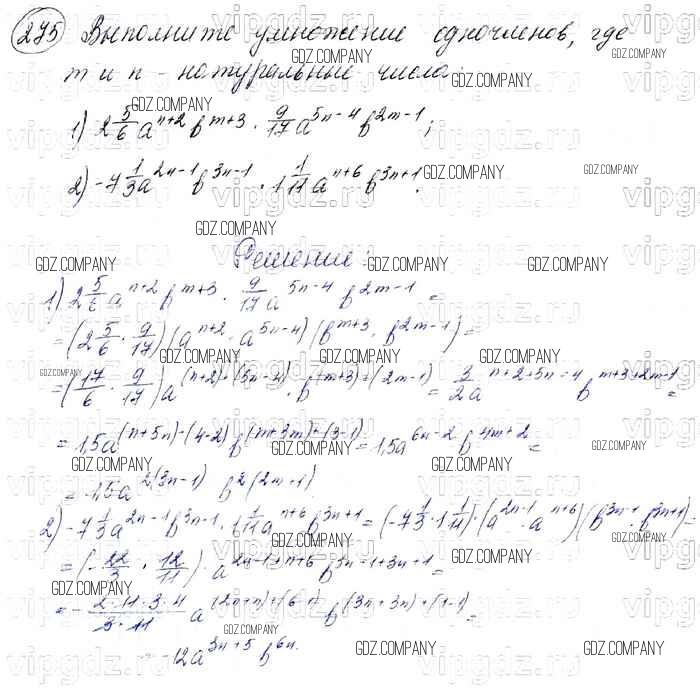 275 Выполните умножение одночленов, где
m и n - натуральные числа:
1) 2 5/6 a^(n+2) b^(m+3) · 9/17 a^(5n-4) b^(2m-1);
2) -7 1/3 a^(2n-1) b^(3n-1) · 1 1/11 a^(n+6) b^(3n+1).
Решение:
1) 2 5/6 a^(n+2) b^(m+3) · 9/17 a^(5n-4) b^(2m-1) =
= (2 5/6 · 9/17)(a^(n+2) · a^(5n-4))(b^(m+3) · b^(2m-1)) =
= (17/6 · 9/17) a^((n+2)+(5n-4)) · b^((m+3)+(2m-1)) = 3/2 a^(n+2+5n-4) b^(m+3+2m-1) =
= 1,5a^((n+5n)-(4-2)) b^((m+3m)+(3-1)) = 1,5a^(6n-2) b^(4m+2) =
= 1,5a^(2(3n-1)) b^(2(2m+1))
2) -7 1/3 a^(2n-1) b^(3n-1) · 1 1/11 a^(n+6) b^(3n+1) = (-7 1/3 · 1 1/11) · (a^(2n-1) · a^(n+6))(b^(3n-1) · b^(3n+1)) =
= (-22/3 · 12/11) · a^(2n-1+n+6) b^(3n-1+3n+1) =
= - 2·11·3·4/3·11 a^((2n+n)+(6-1)) b^((3n+3n)+(1-1)) =
= -12a^(3n+5) b^(6n).